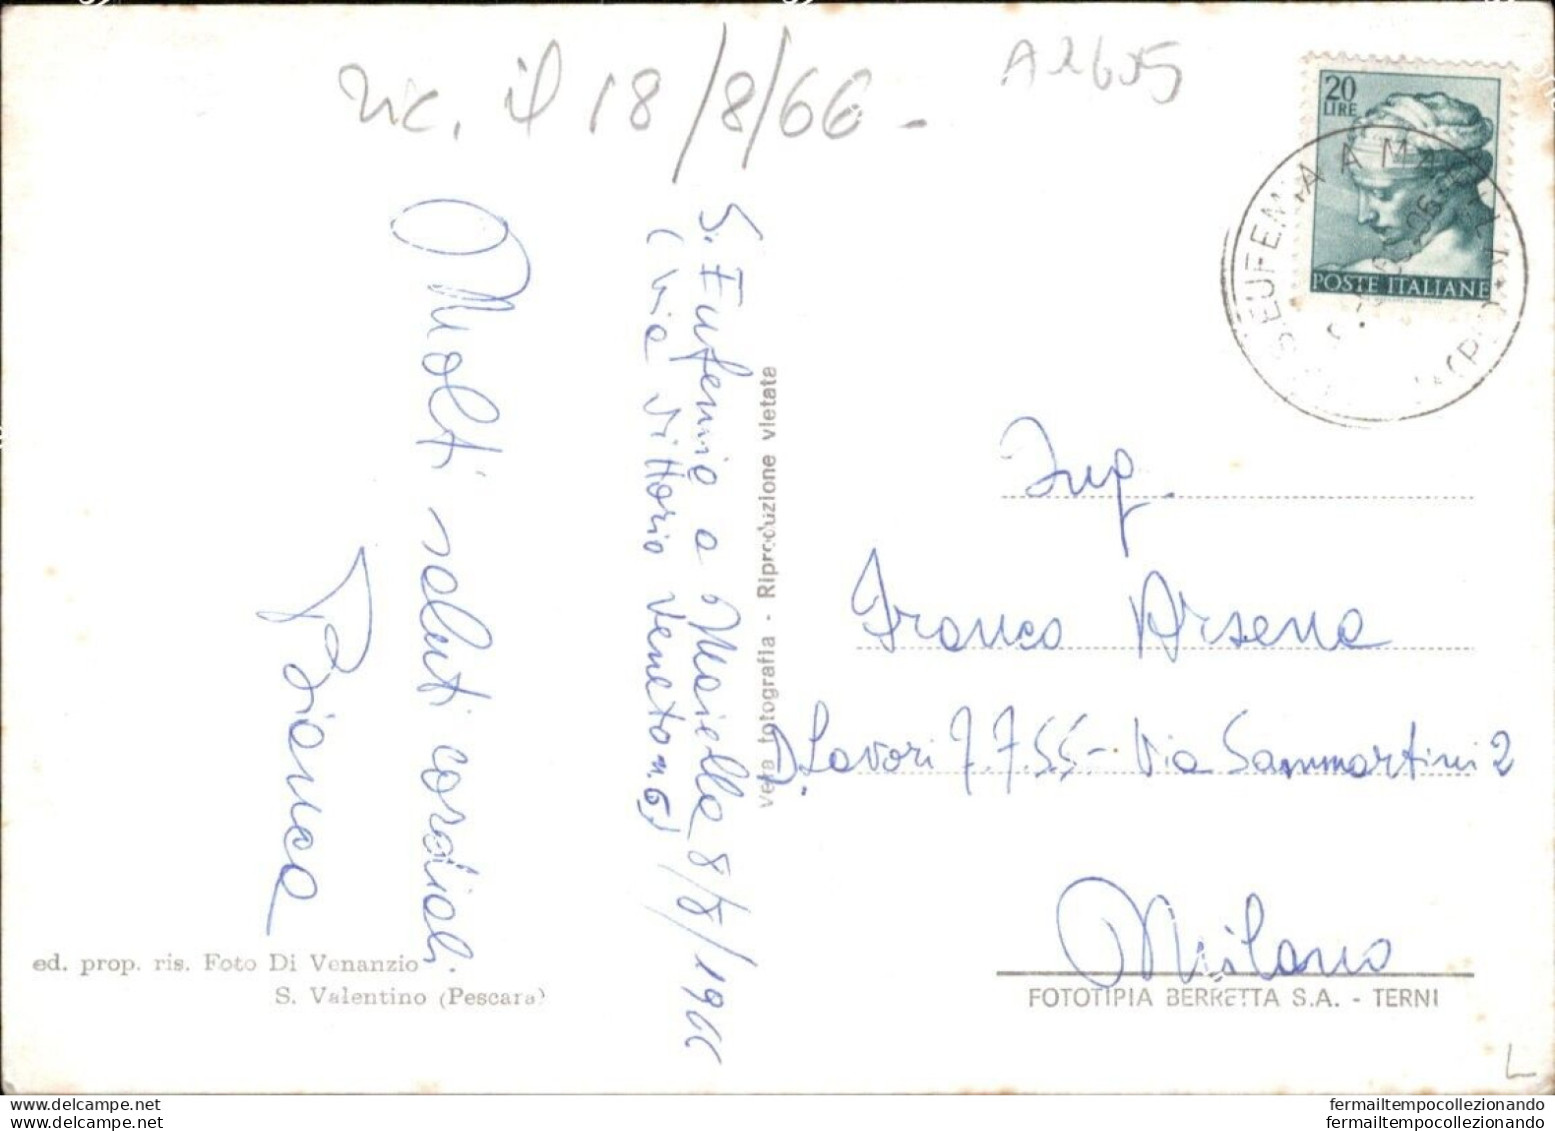 ric. il 18/8/66 -
A2605
20
LIRE
POSTE ITALIANE
S. EUFEMIA A MAIELLA
S. Eufemia a Maiella 8/8/1966
(Via Vittorio Veneto n. 6)
Molti saluti cordiali.
Bianca
vera fotografia - Riproduzione vietata
Ing.
Franco Arsena
D. Lavori FF.SS. - Via Sammartini 2
Milano
ed. prop. ris. Foto Di Venanzio
S. Valentino (Pescara)
FOTOTIPIA BERRETTA S.A. - TERNI
L
www.delcampe.net
fermailtempocollezionando
www.delcampe.net
fermailtempocollezionando